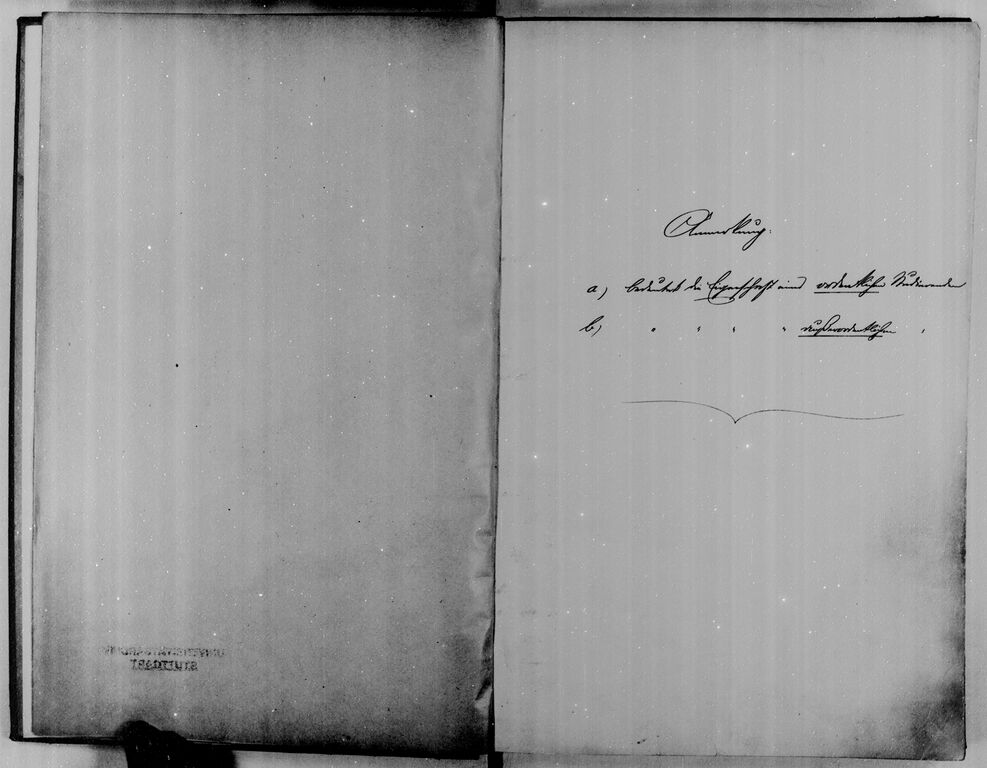 UNIVERSITÄTSARCHIV
STUTTGART
Anmerkung:
a) bedeutet die Eigenschaft eines ordentlichen Studierenden
b) " " " " außerordentlichen "